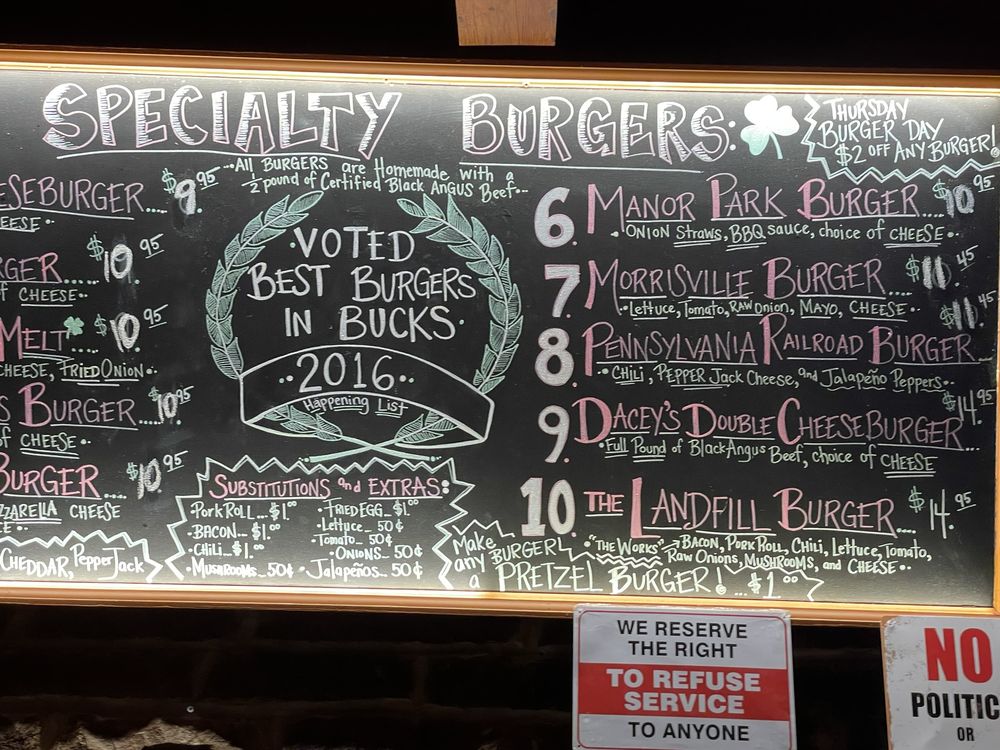 SPECIALTY BURGERS:
THURSDAY
BURGER DAY
$2 OFF ANY BURGER!
...All BURGERS are Homemade with a
½ pound of Certified Black Angus Beef...
ESEBURGER..... $9.95
EESE..
RGER...... $10.95
f CHEESE..
MELT..... $10.95
CHEESE, FRIED ONION..
S BURGER.... $10.95
f CHEESE..
BURGER.... $10.95
ZZARELLA CHEESE
CE..
CHEDDAR, PepperJack
VOTED
BEST BURGERS
IN BUCKS.
..2016..
Happening List
SUBSTITUTIONS and EXTRAS:
.PorkRoll...$1.00
.BACON...$1.00
.Chili...$1.00
.MUSHROOMS...50¢
.FRIED EGG...$1.00
.Lettuce...50¢
.Tomato...50¢
.ONIONS...50¢
.Jalapeños...50¢
6. MANOR PARK BURGER.... $10.95
..ONION Straws, BBQ sauce, choice of CHEESE..
7. MORRISVILLE BURGER $10.45
..Lettuce, Tomato, RAW Onion, MAYO, CHEESE..
8. PENNSYLVANIA RAILROAD BURGER... $11.45
..CHILI, PEPPER Jack Cheese, and Jalapeño Peppers..
9. DACEY'S DOUBLE CHEESEBURGER... $14.95
..Full Pound of Black Angus Beef, choice of CHEESE
10. THE LANDFILL BURGER... $14.95
"THE WORKS" → BACON, PORK ROLL, CHILI, LETTUCE, TOMATO,
Raw Onions, MUSHROOMS, and CHEESE..
Make
any BURGER!
a PRETZEL BURGER! ...$1.00
WE RESERVE
THE RIGHT
TO REFUSE
SERVICE
TO ANYONE
NO
POLITIC
OR